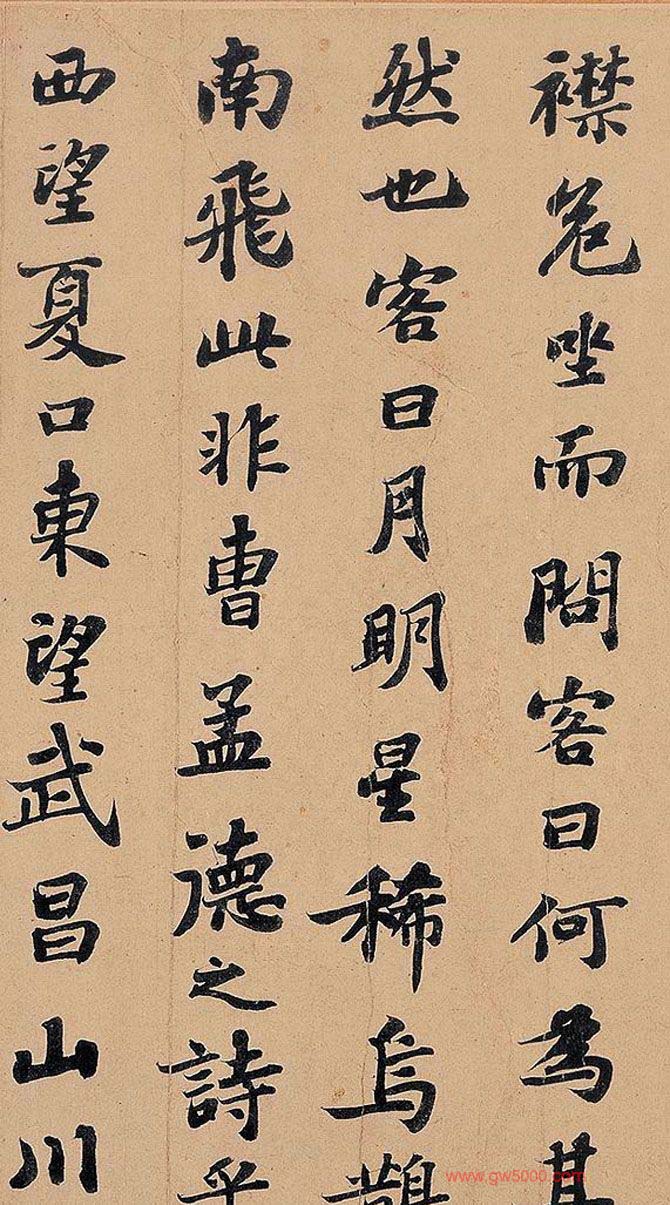 襟危坐而問客曰何為其
然也客曰月明星稀烏鵲
南飛此非曹孟德之詩乎
西望夏口東望武昌山川
www.gw5000.com